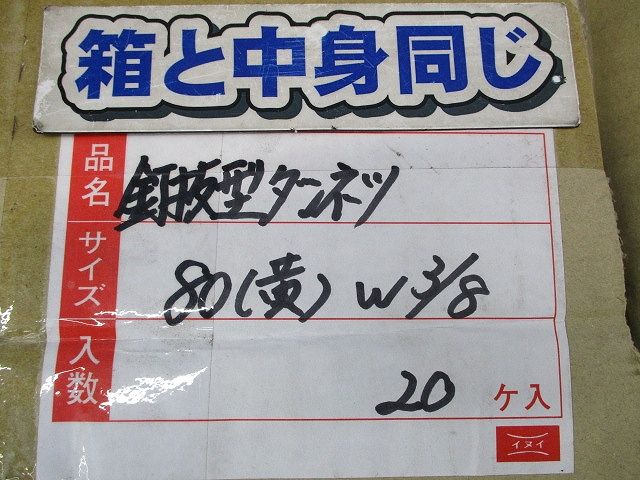 箱と中身同じ
品名 鋼板型ターンネツ
サイズ 80(黄) W 3/8
入数 20 ケ入
イヌイ